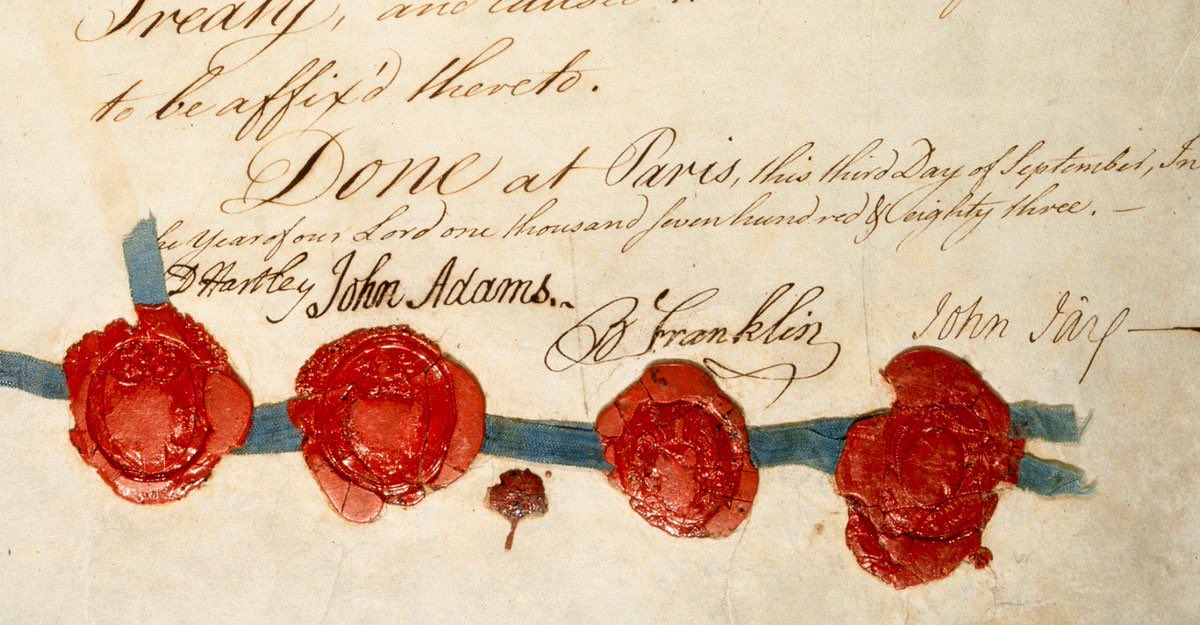 Treaty, and caused
to be affix'd thereto.
Done at Paris, this third Day of September, In
he Year of our Lord one thousand seven hundred & eighty three. —
D Hartley John Adams.
B Franklin John Jay —